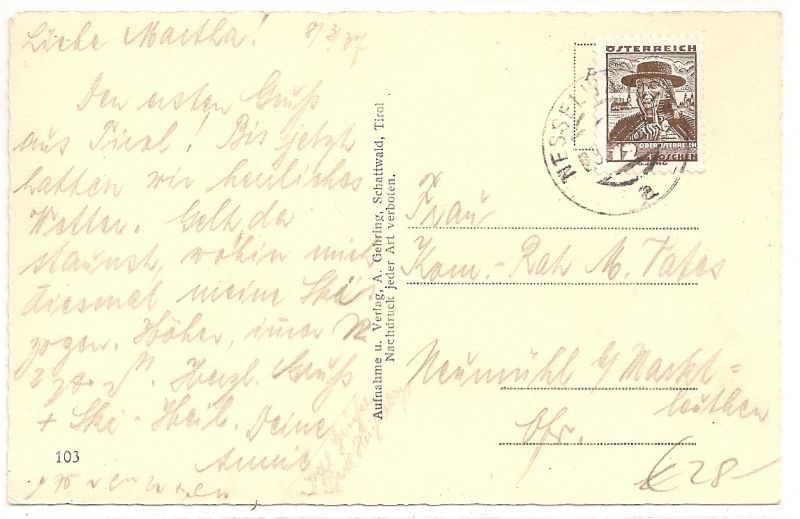 Liebe Martha! 8/3/37
Den ersten Gruß
aus Tirol! Bis jetzt
hatten wir herrliches
Wetter. Gelt da
staunst, wohin mich
diesmal meine Ski
zogen. Höher, immer
Herzl. Gruß
+ Ski-Heil. Deine
Annie
103
Aufnahme u. Verlag, A. Gehring, Schattwald, Tirol
Nachdruck jeder Art verboten.
ÖSTERREICH
12
OBERÖSTERREICH
GROSCHEN
Frau
Kom.-Rat M.
Neumühl b/ Markt-
leuthen
Ofr.
€ 28